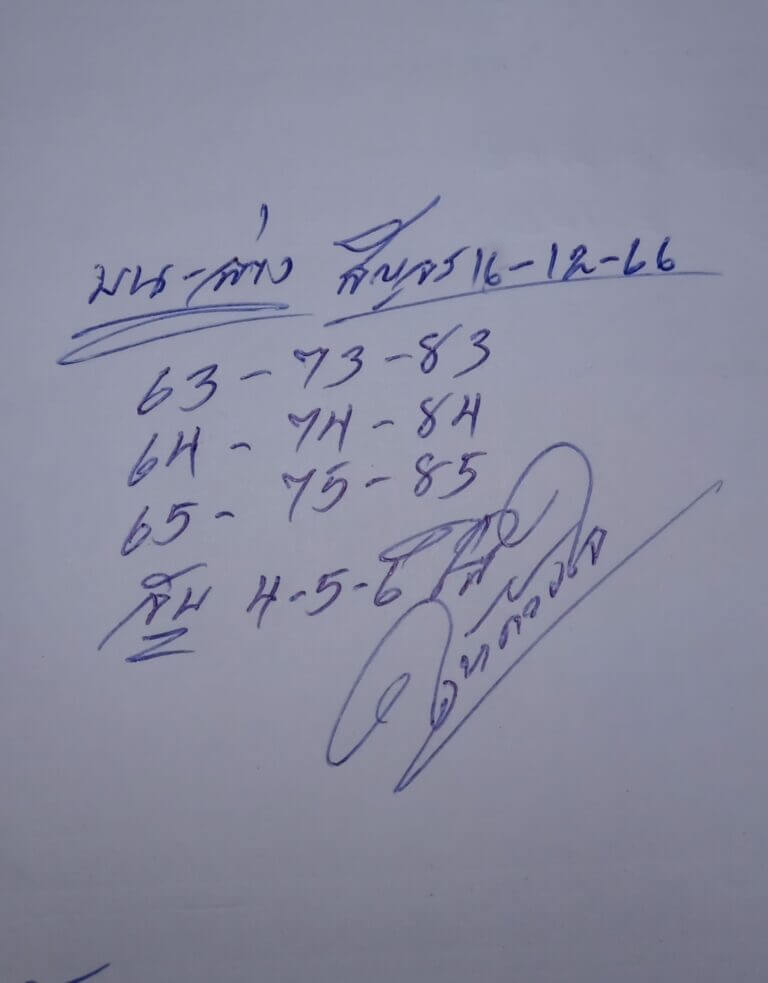 บน-ล่าง สัญจร 16-12-66
63-73-83
64-74-84
65-75-85
4-5-6